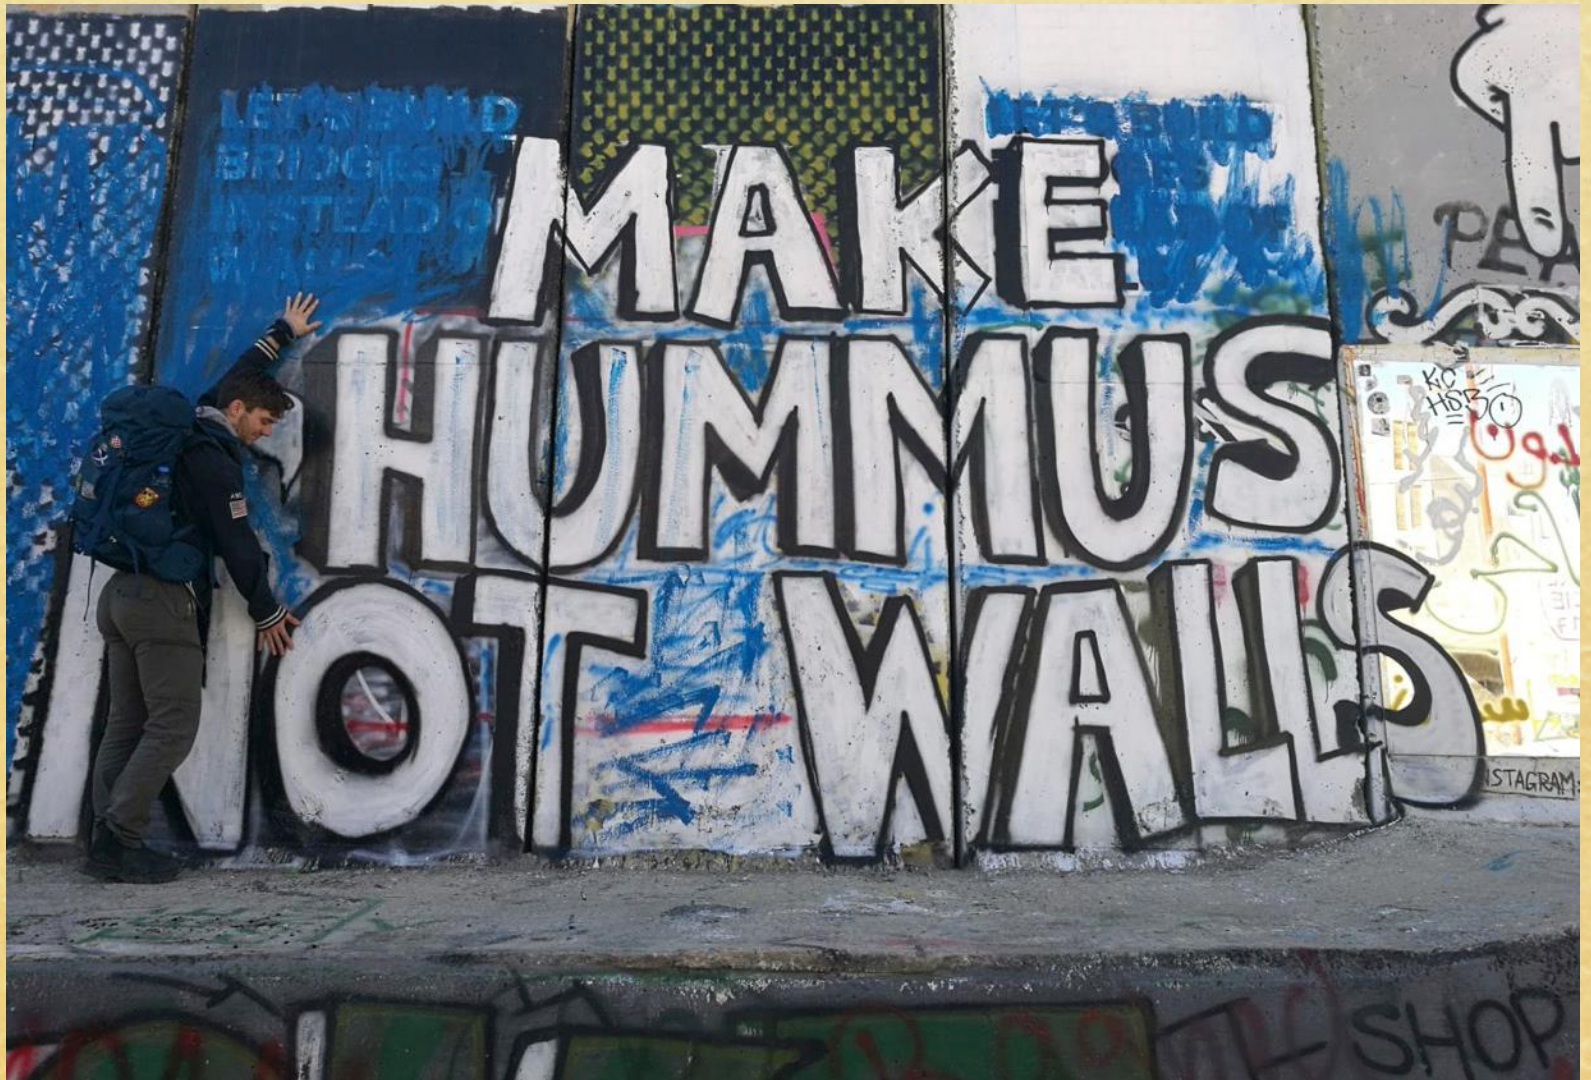 LET'S BUILD
BRIDGES
INSTEAD OF
LET'S BUILD
MAKE
HUMMUS
NOT WALLS
PEA
KC
HSB
INSTAGRAM:
SHOP